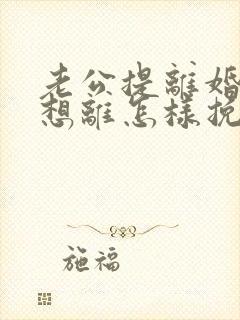 老公提離婚
想離怎樣挽
施福